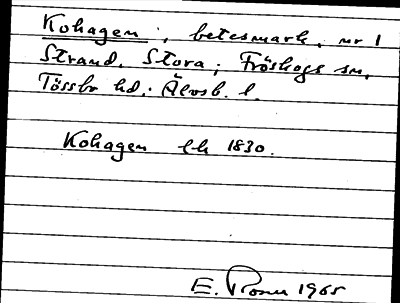 Kohagen, betesmark, nr 1
Strand, Stora; Fröskogs sn,
Tössbo hd. Älvsb. l.
Kohagen lh 1830.
E. 1965